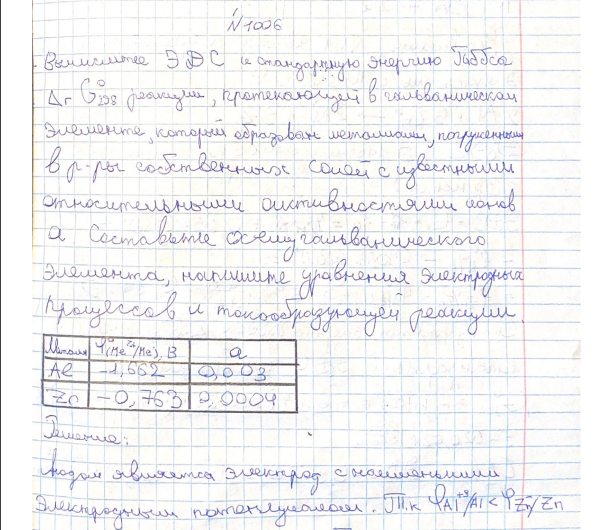 N1006
Вычислите ЭДС и стандартную энергию Гиббса
ΔrG°298 реакции, протекающей в гальваническом
элементе, который образован металлами, погруженными
в р-ры собственных солей с известными
относительными активностями ионов
а. Составьте схему гальванического
элемента, напишите уравнения электродных
процессов и токообразующей реакции.
Металл φ°(Me^z+/Me), В a
Al -1,662 0,003
Zn -0,763 0,0004
Решение:
Анодом является электрод с наименьшим
электродным потенциалом. Т.к φAl+3/Al < φZn/Zn